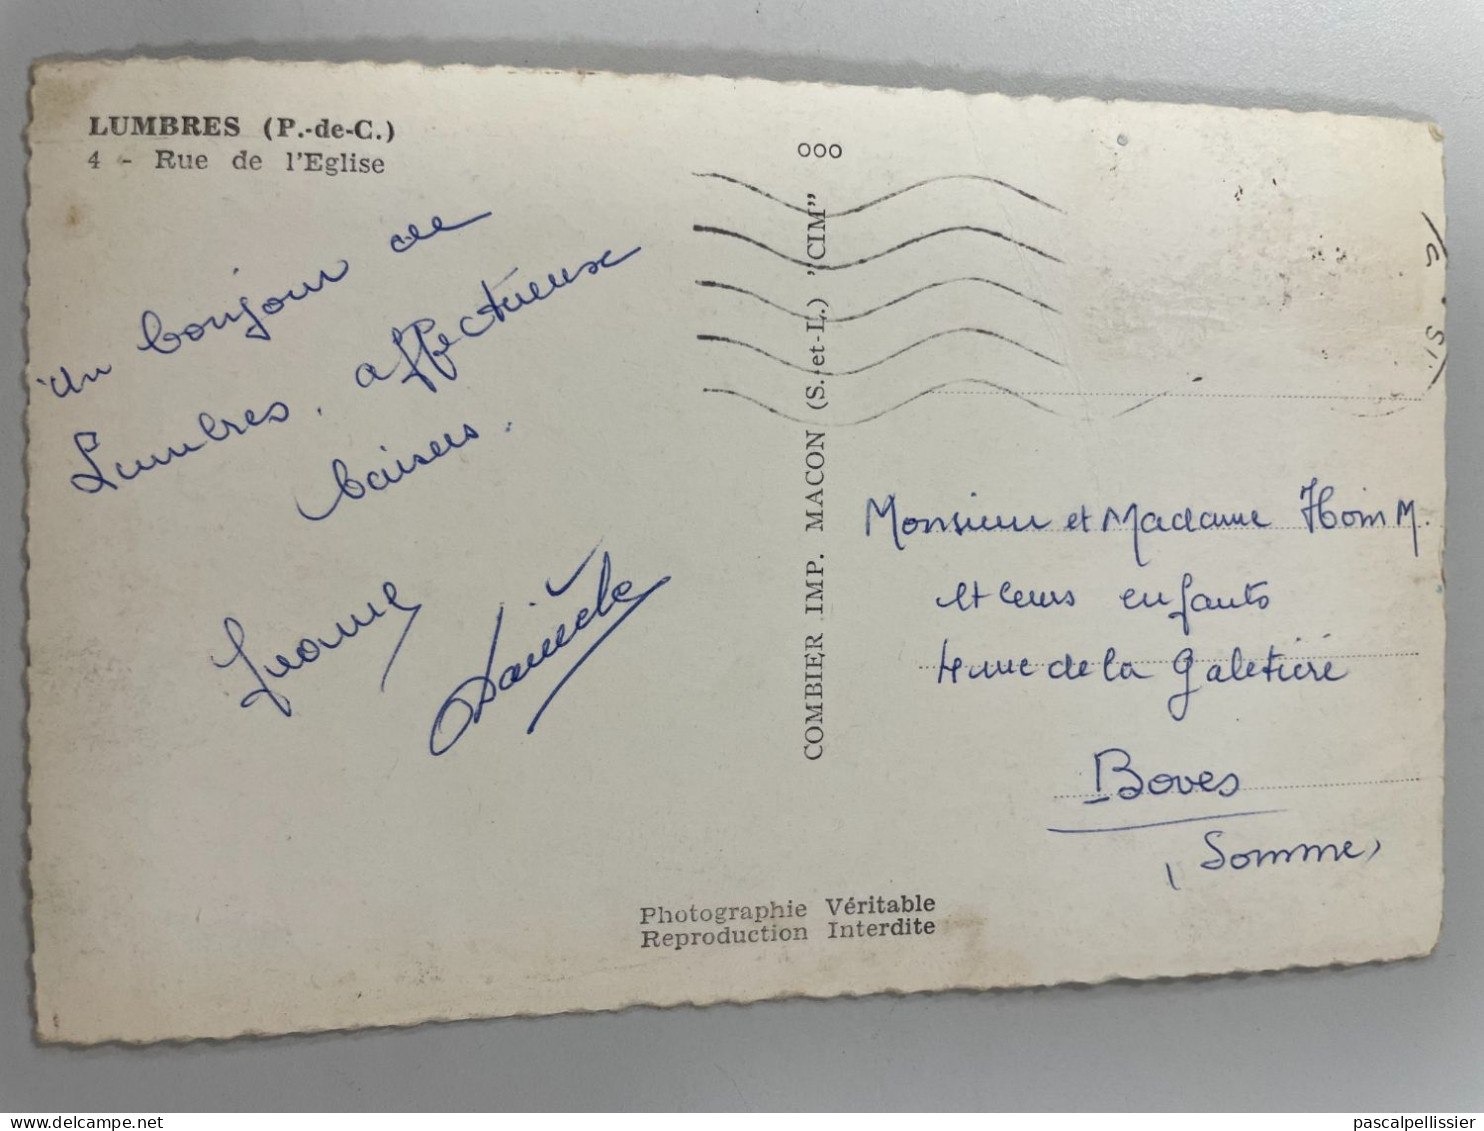 LUMBRES (P.-de-C.)
4 - Rue de l'Eglise
un bonjour de
Lumbres. affectueux
baisers.
Danièle
ooo
COMBIER IMP. MACON (S.-et-L.) "CIM"
Monsieur et Madame
et leurs enfants
rue de la
Boves
(Somme)
Photographie Véritable
Reproduction Interdite
pascalpellissier